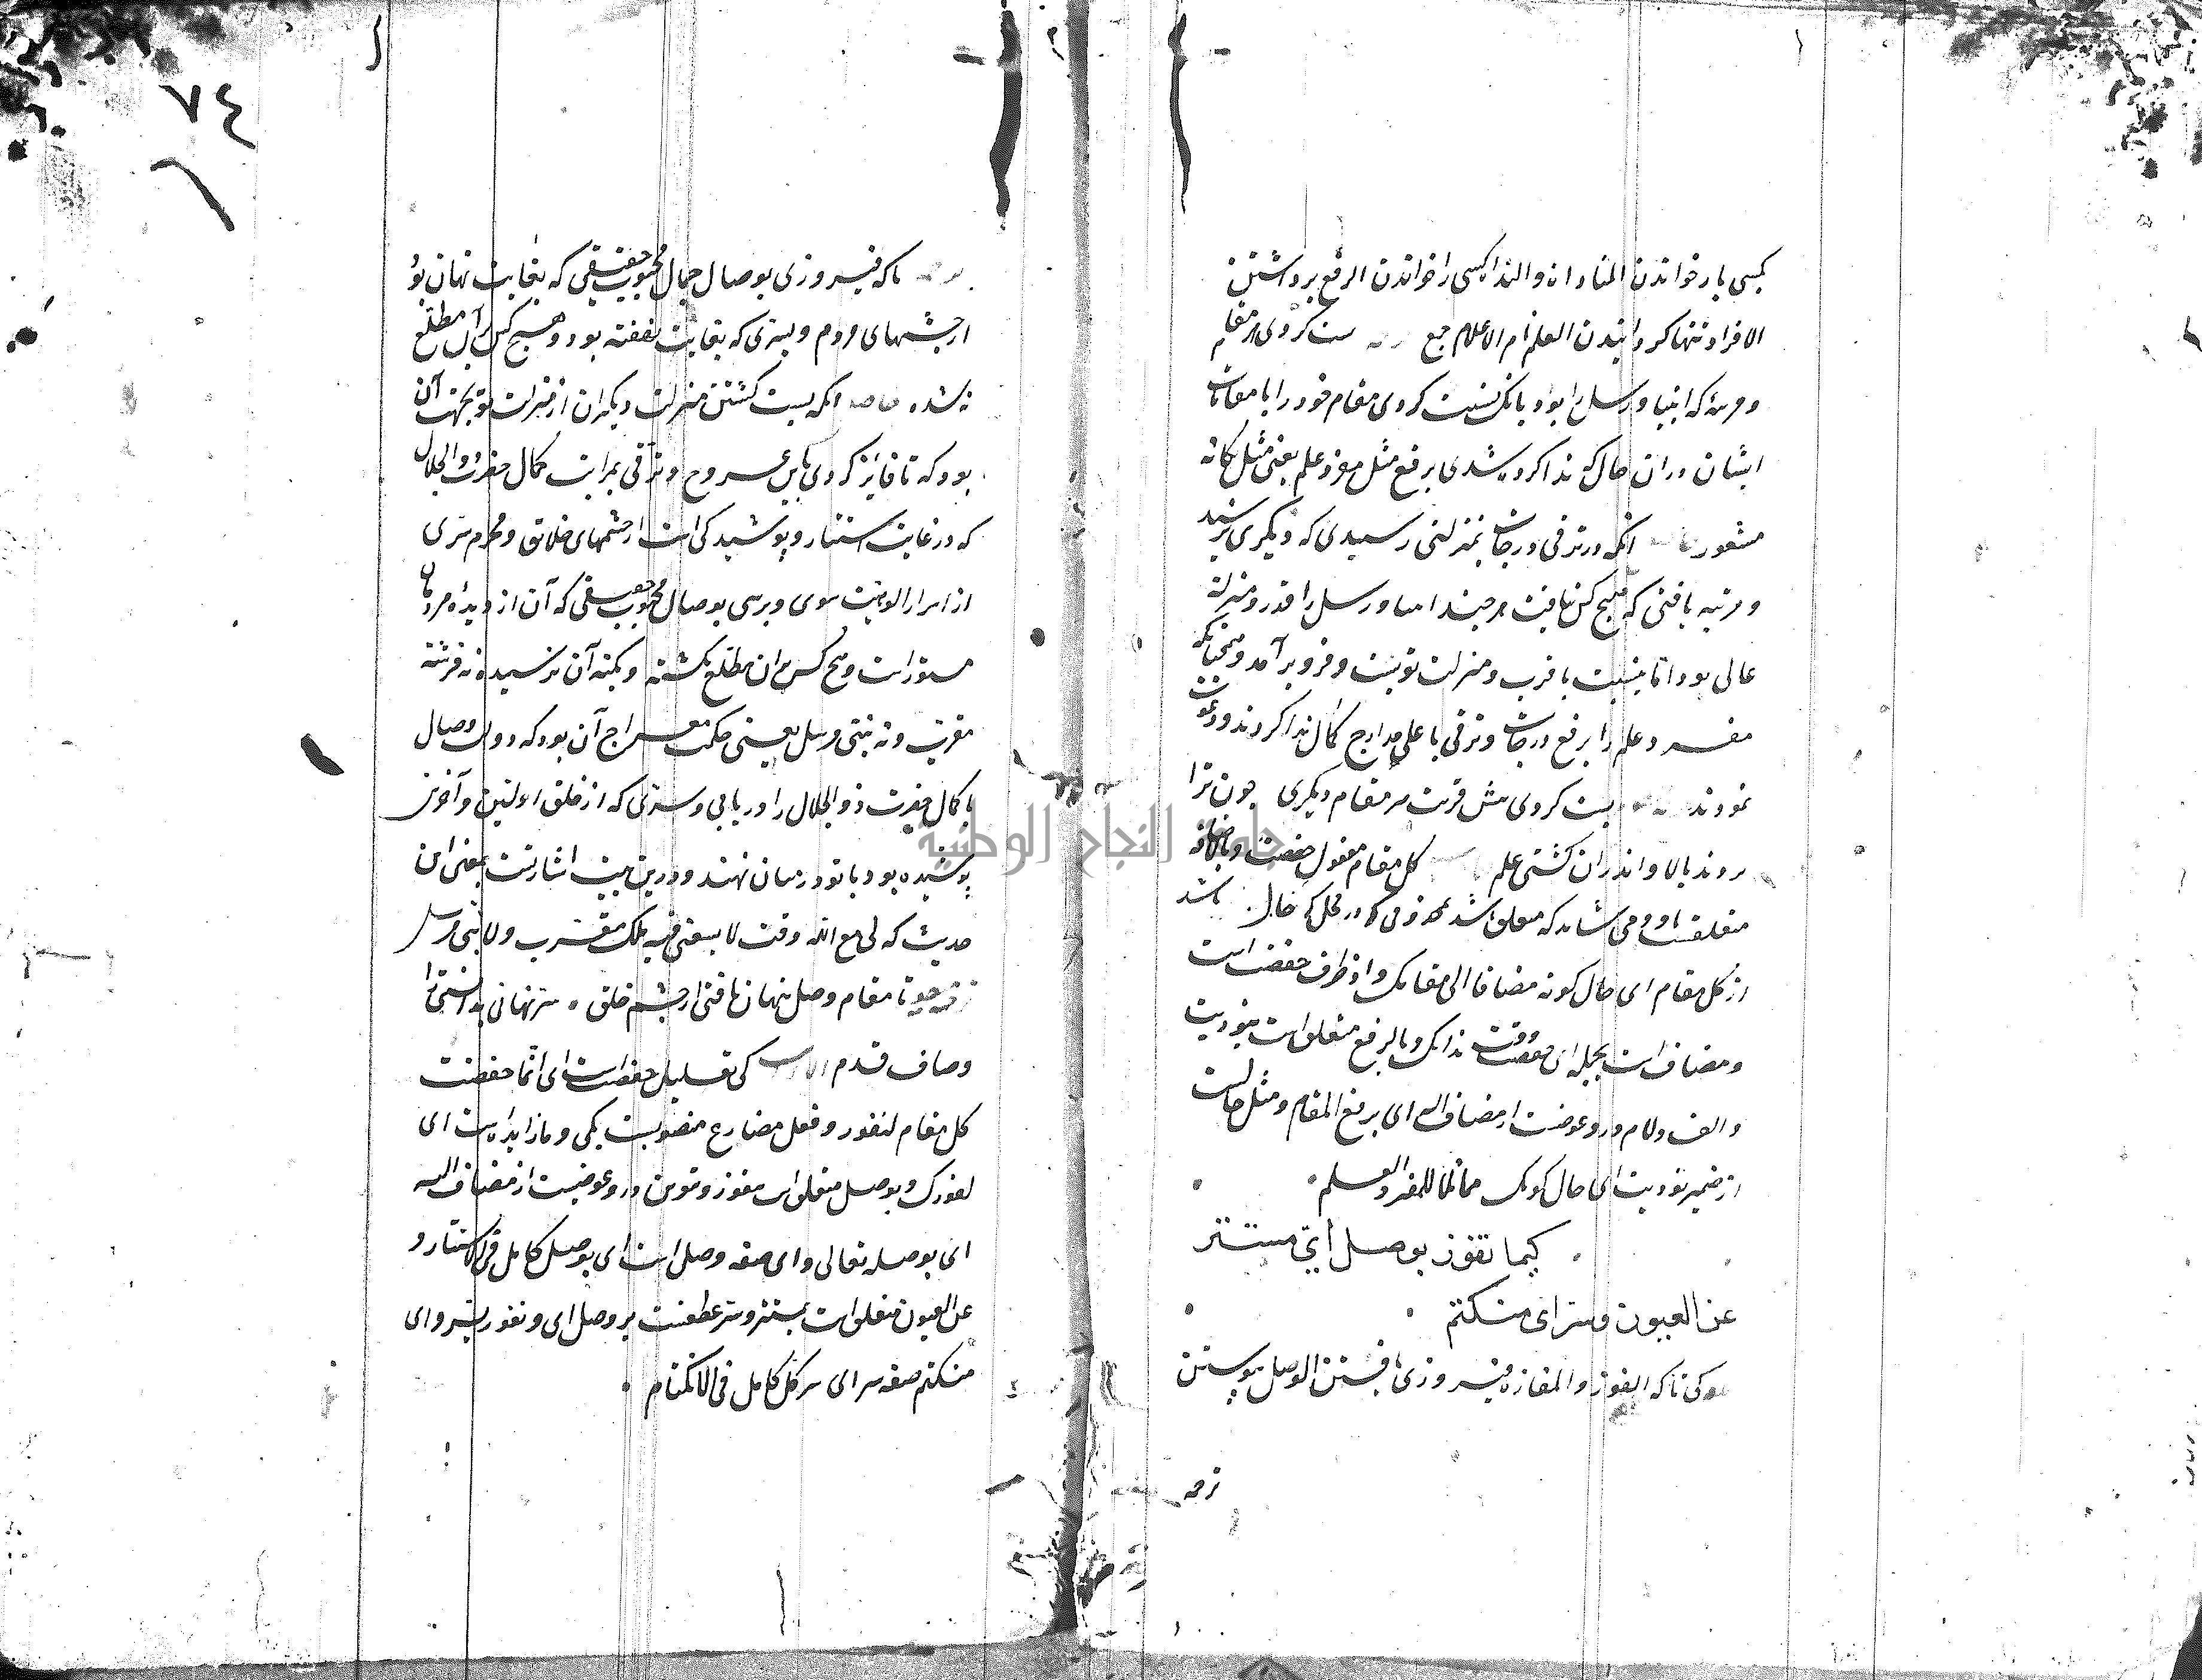 کسی را خواندن المناداة والندا کسی را خواندن الرفع برداشتن
الافراد تنها کردانیدن العلم الاعلام جمع پست کردی هر مقام
ومرتبه که انبیا ورسل را بود بانک نسبت کردی مقام خود را با مقامات
ایشان دران حال که ندا کرده شدی برفع مثل مفرد علم یعنی مثل یکانه
مشهور انکه در ترقی درجات بمنزلتی رسیدی که دیکری نرسید
ومرتبه یافتی که هیچ کس نیافت هر چند انبیا ورسل را قدر ومنزلة
عالی بود اما بنسبت با قرب ومنزلت تو پست وفرو برآمد وهمچنانکه
مفرد علم را برفع درجات وترقی باعلی مدارج کمال ندا کردند ودعوت
نمودند پست کردی پیش قربت هر مقام دیکری چون ترا
روند بالا واندران کشتی علم کل مقام مفعول خفضت وبالاضافه
متعلقست باو ومی شاید که معلق باشد بمحذوفی که در محل حال باشد
از کل مقام ای حال کونه مضافا الی مقامک واذ ظرف خفضت است
ومضاف است بجمله ای خفضت وقت ندائک وبالرفع متعلق است بنودیت
والف ولام درو عوضست از مضاف الیه ای برفع المقام ومثل حالست
از ضمیر نودیت ای حال کونک مماثلا للمفرد العلم
کیما تفوز بوصل ای مستتر
عن العیون وسر ای مکتتم
کی تاکه الفوز والمفازة فیروزی یافتن الوصل پیوستن
ترجمه
٧٤
تاکه فیروزی بوصال جمال محبوب حقیقی که بغایت نهان بود
از چشمهای مردم وبسری که بغایت نهفته بود وهیچ کس بر آن مطلع
نشده حاصل انکه پست کشتن منزلت دیکران از منزلت تو بجهت آن
بود که تا فایز کردی باین عروج وترقی بمراتب کمال حضرت ذو الجلال
که در غایت استتار وپوشیدکی است از چشمهای خلائق ومحرم سری
از اسرار الوهیت شوی وبرسی بوصال محبوب حقیقی که آن از دیدۀ مردمان
مستور است وهیچ کس بران مطلع نکشته وبکنه آن نرسیده نه فرشته
مقرب ونه نبی مرسل یعنی حکمت معراج آن بود که دولت وصال
با کمال حضرت ذو الجلال را دریابی وسری که از خلق اولین وآخرین
پوشیده بود با تو درمیان نهند ودرین بیت اشارتست بمعنی این
حدیث که لی مع الله وقت لا یسعنی فیه ملک مقرب ولا نبی مرسل
تا مقام وصل پنهان یافتی از چشم خلق ٠ سر نهانی بدانستی
وصاف قدم کی تعلیل خفضت است ای انما خفضت
کل مقام لتفوز وفعل مضارع منصوبست بکی وما زایده است ای
لفوزک وبوصل متعلق است بتفوز وتنوین درو عوضست از مضاف الیه
ای بوصله تعالی وای صفه وصل است ای بوصل کامل فی الاستتار و
عن العیون متعلق است بمستتر وسر عطفست بر وصل ای وتفوز بسر وای
مکتتم صفه سر ای سر کل کامل فی الاکتتام
جامعة النجاح الوطنية